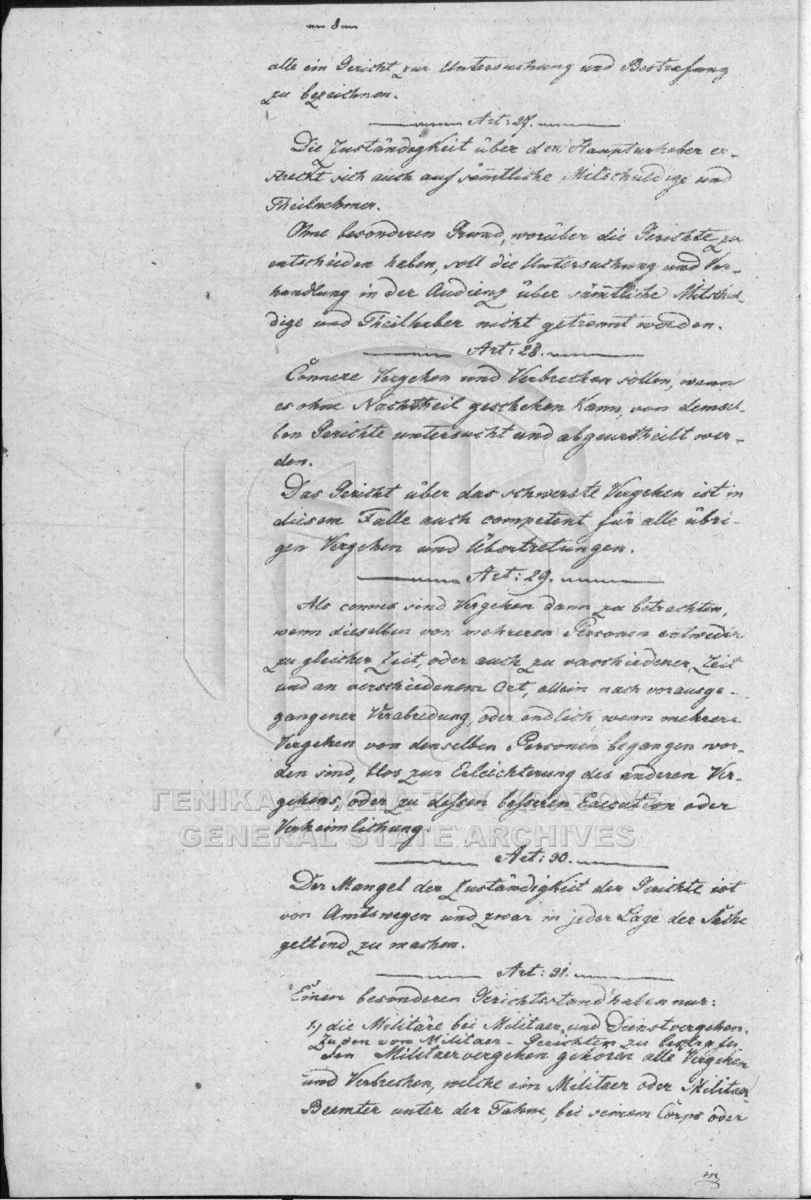 8
alle ein Gericht zur Untersuchung und Bestrafung
zu bezeichnen.
Art: 27.
Die Zuständigkeit über den Haupturheber er-
streckt sich auch auf sämtliche Mitschuldige und
Theilnehmer.
Ohne besonderen Grund, worüber die Gerichte zu
entscheiden haben, soll die Untersuchung und Ver-
handlung in der Audienz über sämtliche Mitschul-
dige und Theilhaber nicht getrennt werden.
Art: 28.
Connexe Vergehen und Verbrechen sollen, wenn
es ohne Nachtheil geschehen kann, von demsel-
ben Gerichte untersucht und abgeurtheilt wer-
den.
Das Gericht über das schwerste Vergehen ist in
diesem Falle auch competent für alle übri-
gen Vergehen und Übertretungen.
Art: 29.
Als connex sind Vergehen dann zu betrachten,
wenn dieselben von mehreren Personen entweder
zu gleicher Zeit, oder auch zu verschiedener Zeit
und an verschiedenem Ort, allein nach vorausge-
gangener Verabredung, oder endlich, wenn mehrere
Vergehen von denselben Personen begangen wor-
den sind, blos zur Erleichterung des anderen Ver-
gehens, oder zu dessen besseren Execution oder
Verheimlichung.
ΓΕΝΙΚΑ ΑΡΧΕΙΑ ΤΟΥ ΚΡΑΤΟΥΣ
GENERAL STATE ARCHIVES
Art: 30.
Der Mangel der Zuständigkeit der Gerichte ist
von Amtswegen und zwar in jeder Lage der Sache
geltend zu machen.
Art: 31.
Einen besonderen Gerichtsstand haben nur:
1.) die Militäre bei Militaer und Dienstvergehen.
Zu den vom Militaer-Gerichten zu bestrafen-
den Militaervergehen gehören alle Vergehen
und Verbrechen, welche ein Militaer oder Militaer
Beamter unter der Fahne, bei seinem Corps oder
in